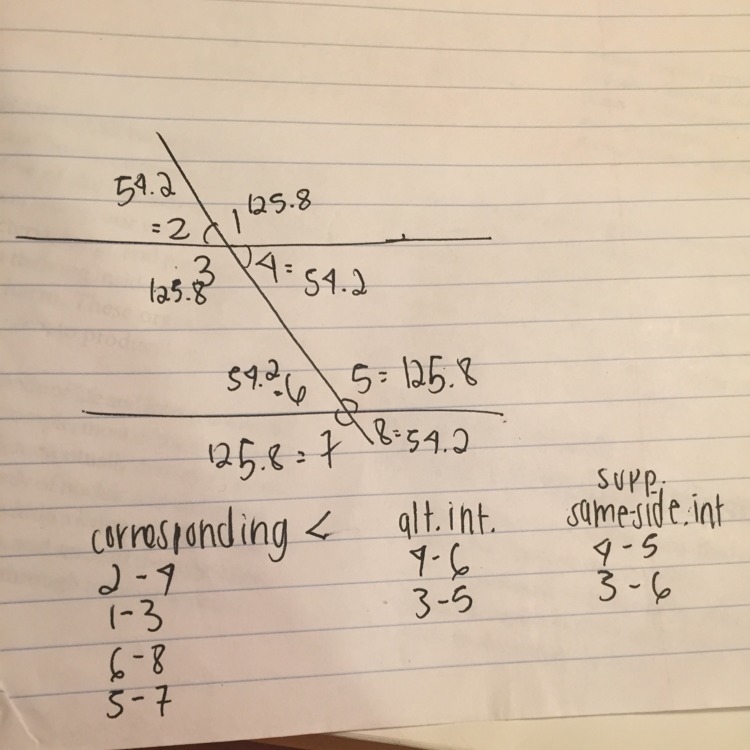 54.2
= 2 1 125.8
3 4 = 54.2
125.8
54.2 = 6 5 = 125.8
125.8 = 7 8 = 54.2
corresponding <
2 - 4
1 - 3
6 - 8
5 - 7
alt. int.
4 - 6
3 - 5
supp.
same-side. int
4 - 5
3 - 6